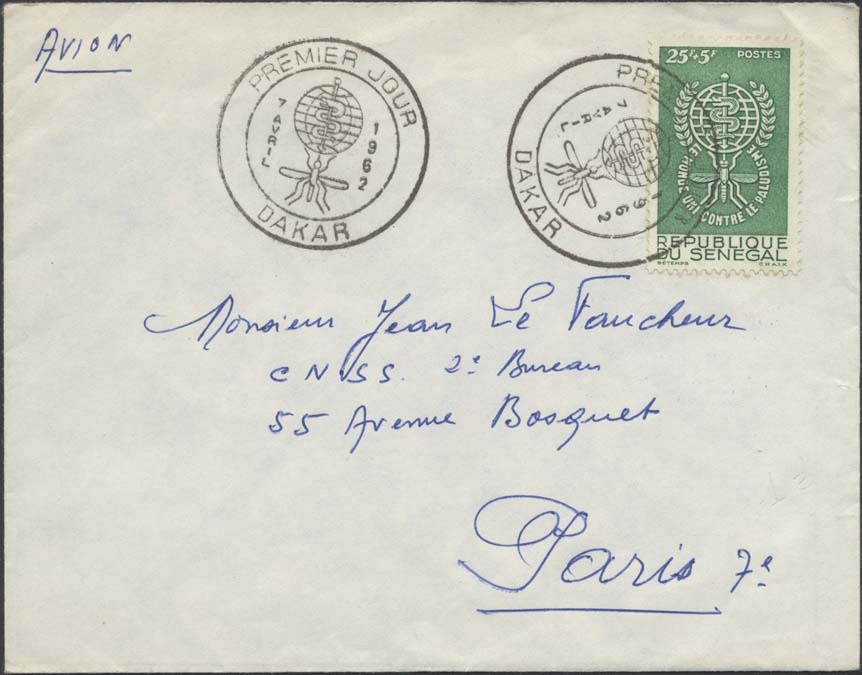 AVION
PREMIER JOUR
7 AVRIL
1962
DAKAR
PREM
7 AVRIL
1962
DAKAR
R
25F+5F POSTES
LE MONDE UNI CONTRE LE PALUDISME
REPUBLIQUE
DU SENEGAL
BÉTEMPS CHAIX
Monsieur Jean Le Faucheur
C N.S S. 2e Bureau
55 Avenue Bosquet
Paris 7e